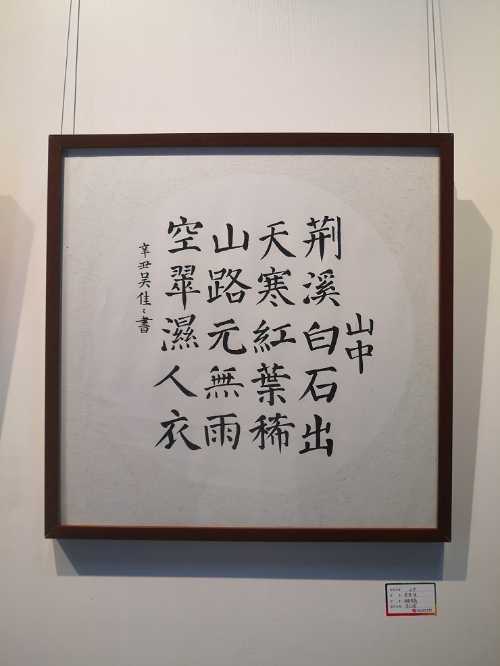 山中
荆溪白石出
天寒紅葉稀
山路元無雨
空翠濕人衣
辛丑吴佳〻書